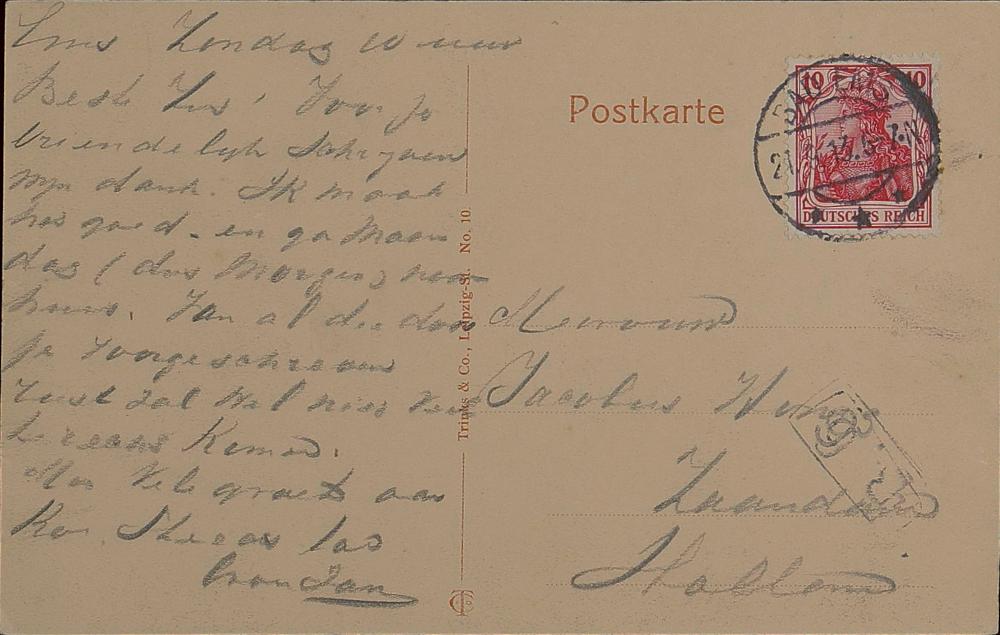 Ems Zondag 10 uur
Beste Zus! Voor je
vriendelijk Schrijven
mijn dank. Ik maak
het goed - en ga Maan
dag (dus Morgen) naar
huis. Van al de door
je voorgeschreven
rust zal wel niet veel
terecht Komen.
Met vele groeten aan
Kor.
broer Jan
Postkarte
10 10
BAD EMS
DEUTSCHES REICH
Trinks & Co., Leipzig-St. No. 10.
Mevrouw
Jacobus
Zaandam
Holland